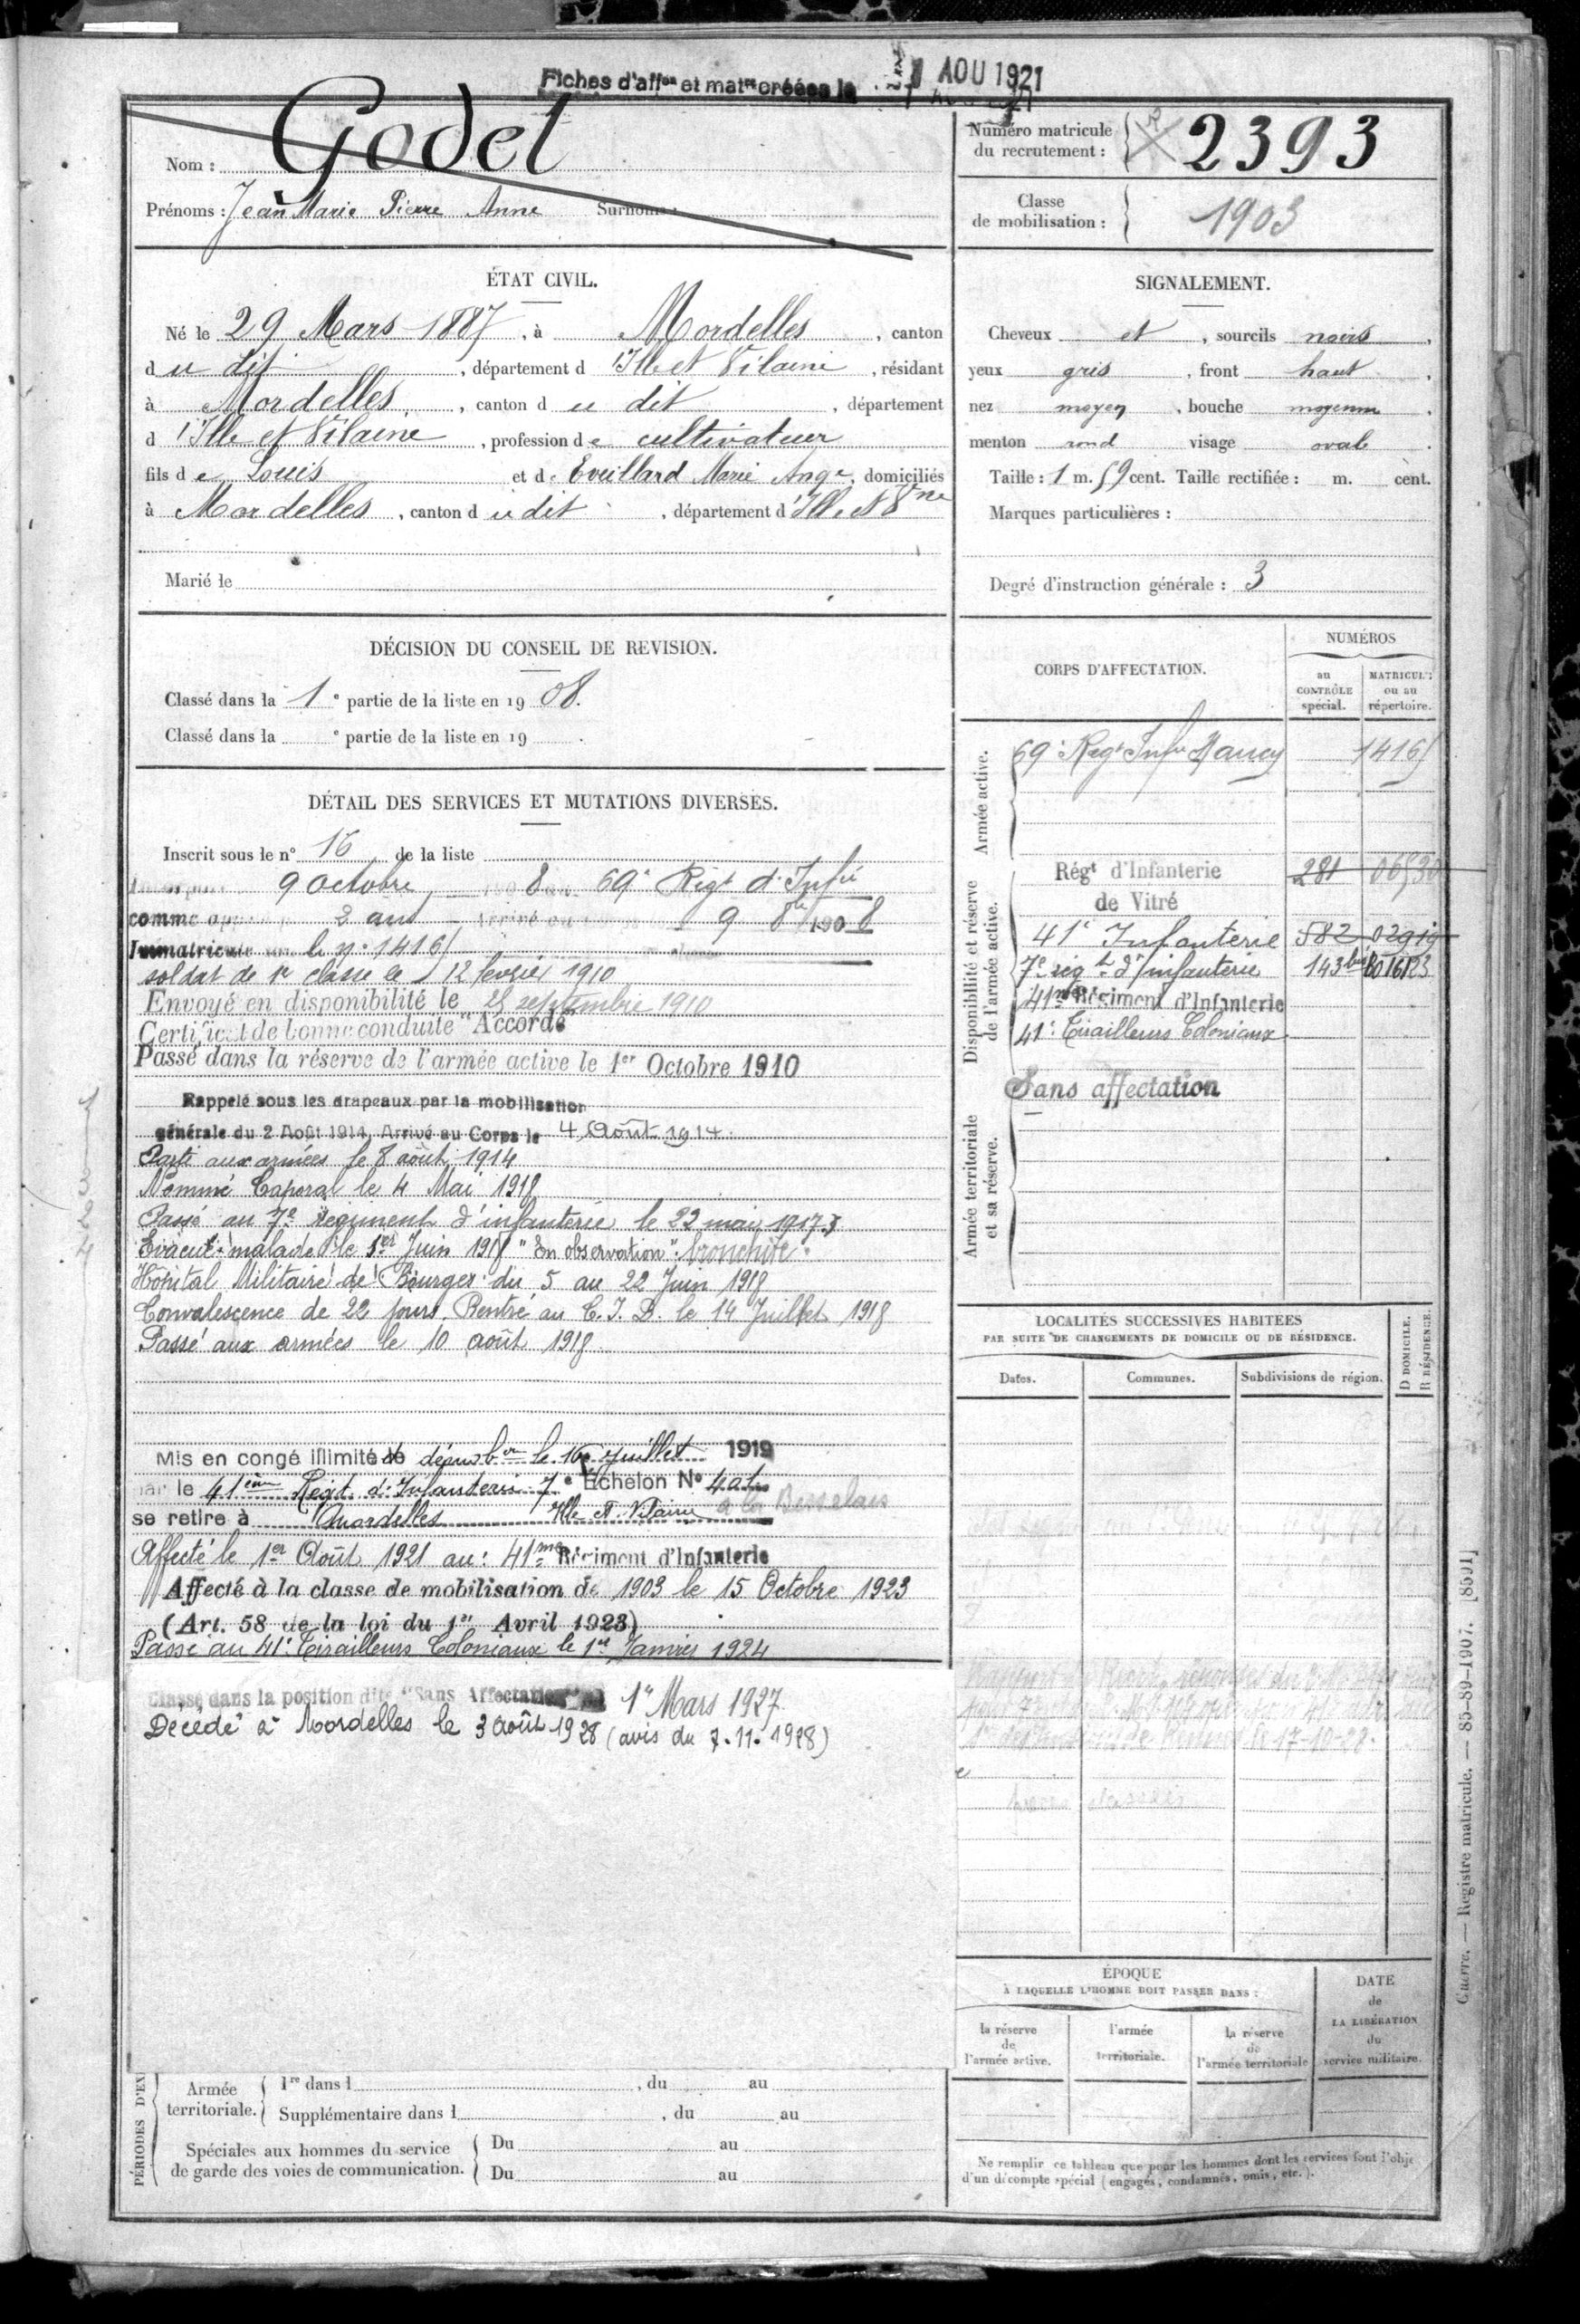 Fiches d'aff<sup>on</sup> et mat<sup>re</sup> créées le 1 AOU 1921
Nom : Godet
Prénoms : Jean Marie Pierre Anne Surnoms :
Numéro matricule
du recrutement : 2393
Classe
de mobilisation : 1903
ÉTAT CIVIL.
Né le 29 Mars 1887, à Mordelles, canton
du dit, département d'Ille et Vilaine, résidant
à Mordelles, canton du dit, département
d'Ille et Vilaine, profession de cultivateur
fils de Louis et de Eveillard Marie Ange, domiciliés
à Mordelles, canton du dit, département d'Ille et Vne
Marié le
SIGNALEMENT.
Cheveux et, sourcils noirs,
yeux gris, front haut,
nez moyen, bouche moyenne,
menton rond visage ovale.
Taille : 1 m. 59 cent. Taille rectifiée : m. cent.
Marques particulières :
Degré d'instruction générale : 3
DÉCISION DU CONSEIL DE REVISION.
Classé dans la 1e partie de la liste en 1908.
Classé dans la e partie de la liste en 19 .
DÉTAIL DES SERVICES ET MUTATIONS DIVERSES.
Inscrit sous le n° 16 de la liste
9 octobre 8 69e Régt d'Infie
comme 2 ans 9 8bre 1908
Immatriculé le n° 1416
soldat de 1e classe le 12 février 1910
Envoyé en disponibilité le 25 septembre 1910
Certificat de bonne conduite "Accordé"
Passé dans la réserve de l'armée active le 1er Octobre 1910
Rappelé sous les drapeaux par la mobilisation
générale du 2 Août 1914. Arrivé au Corps le 4 Août 1914.
Parti aux armées le 8 août 1914
Nommé Caporal le 4 Mai 1918
Passé au 7e régiment d'infanterie le 22 mai 1917
Evacué malade le 1er Juin 1918 "En observation" bronchite.
Hôpital Militaire de Bourges du 5 au 22 Juin 1918
Convalescence de 22 jours. Rentré au C.I.D. le 14 Juillet 1918
Passé aux armées le 10 août 1918
Mis en congé illimité de démobon le 16 Juillet 1919
par le 41ème Régt d'Infanterie 7e Echelon N°
se retire à Mordelles Ille et Vilaine
Affecté le 1er Août 1921 au : 41me Régiment d'Infanterie
Affecté à la classe de mobilisation de 1903 le 15 Octobre 1923
(Art. 58 de la loi du 1er Avril 1923)
Passé au 41e Tirailleurs Coloniaux le 1er Janvier 1924
Classé dans la position dite "Sans Affectation" 1er Mars 1927.
Décédé à Mordelles le 3 août 1928 (avis du 7.11.1928)
CORPS D'AFFECTATION.
NUMÉROS
au CONTRÔLE spécial.
MATRICULE ou au répertoire.
Armée active.
69e Regt Infie Nancy
Disponibilité et réserve
de l'armée active.
Régt d'Infanterie 281 06530
de Vitré
41e Infanterie 582 02919
7e régt d'infanterie 143bis
41me Régiment d'Infanterie
41e Tirailleurs Coloniaux
Sans affectation
Armée territoriale
et sa réserve.
LOCALITÉS SUCCESSIVES HABITÉES
PAR SUITE DE CHANGEMENTS DE DOMICILE OU DE RÉSIDENCE.
Dates. Communes. Subdivisions de région. D DOMICILE. R RÉSIDENCE.
ÉPOQUE
À LAQUELLE L'HOMME DOIT PASSER DANS :
la réserve de l'armée active.
l'armée territoriale.
la réserve de l'armée territoriale
DATE de LA LIBÉRATION du service militaire.
Ne remplir ce tableau que pour les hommes dont les services font l'obje
d'un décompte spécial (engagés, condamnés, omis, etc.).
PÉRIODES D'EX
Armée territoriale. 1re dans l , du au
Supplémentaire dans l , du au
Spéciales aux hommes du service
de garde des voies de communication. Du au
Du au
Guerre. — Registre matricule. — 85-89-1907. [8591]